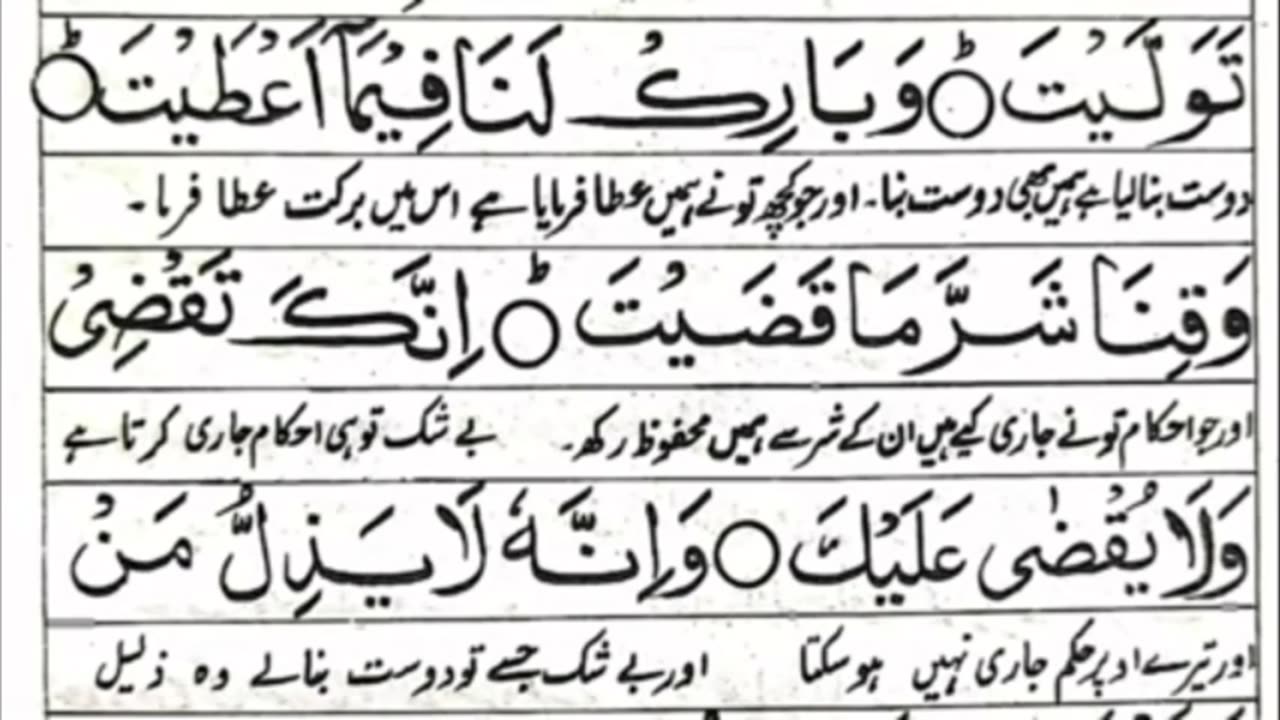 تَوَلَّيْتَ ○ؕ وَبَارِكْ لَنَا فِيْمَآ اَعْطَيْتَ ○ؕ
دوست بنا لیا ہے ہمیں بھی دوست بنا۔ اور جو کچھ تو نے ہمیں عطا فرمایا ہے اس میں برکت عطا فرما۔
وَقِنَا شَرَّ مَا قَضَيْتَ ○ؕ اِنَّكَ تَقْضِىْ
اور جو احکام تو نے جاری کیے ہیں ان کے شر سے ہمیں محفوظ رکھ۔ بے شک تو ہی احکام جاری کرتا ہے
وَلَا يُقْضٰى عَلَيْكَ ○ وَاِنَّهٗ لَا يَذِلُّ مَنْ
اور تیرے اوپر حکم جاری نہیں ہو سکتا اور بے شک جسے تو دوست بنالے وہ ذلیل